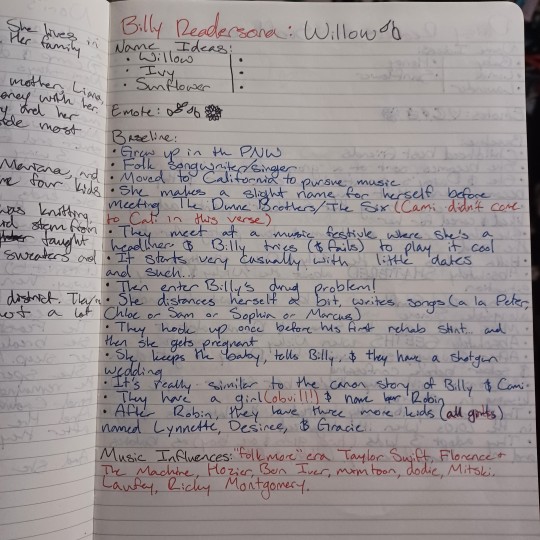 She lives in
Her family
mother, Liana,
money with her.
and her
most
Mariana, and
four kids
was knitting
stem from
taught
sweaters and
district. They're
not a lot
Billy Readersona: Willow
Name Ideas:
• Willow
• Ivy
• Sunflower
Emote:
Baseline:
• Grew up in the PNW
• Folk songwriter/singer
• Moved to California to pursue music
• She makes a slight name for herself before
meeting The Dunne Brothers/The Six (Cami didn't come
to Cali in this verse)
• They meet at a music festival where she's a
headliner $ Billy tries ($ fails) to play it cool
• It starts very casually with little dates
and such...
• Then enter Billy's drug problem!
• She distances herself a bit, writes songs (a la Peter,
Chloe or Sam or Sophia or Marcus)
• They hook up once before his first rehab stint.. and
then she gets pregnant
• She keeps the baby, tells Billy, $ they have a shotgun
wedding
• It's really similar to the canon story of Billy $ Cami
• They have a girl (obvi!!!) $ name her Robin
• After Robin, they have three more kids (all girls)
named Lynnette, Desiree, $ Gracie
Music Influences: "folkmore" era Taylor Swift, Florence +
The Machine, Hozier, Bon Iver, mxmtoon, dodie, Mitski,
Laufey, Ricky Montgomery.